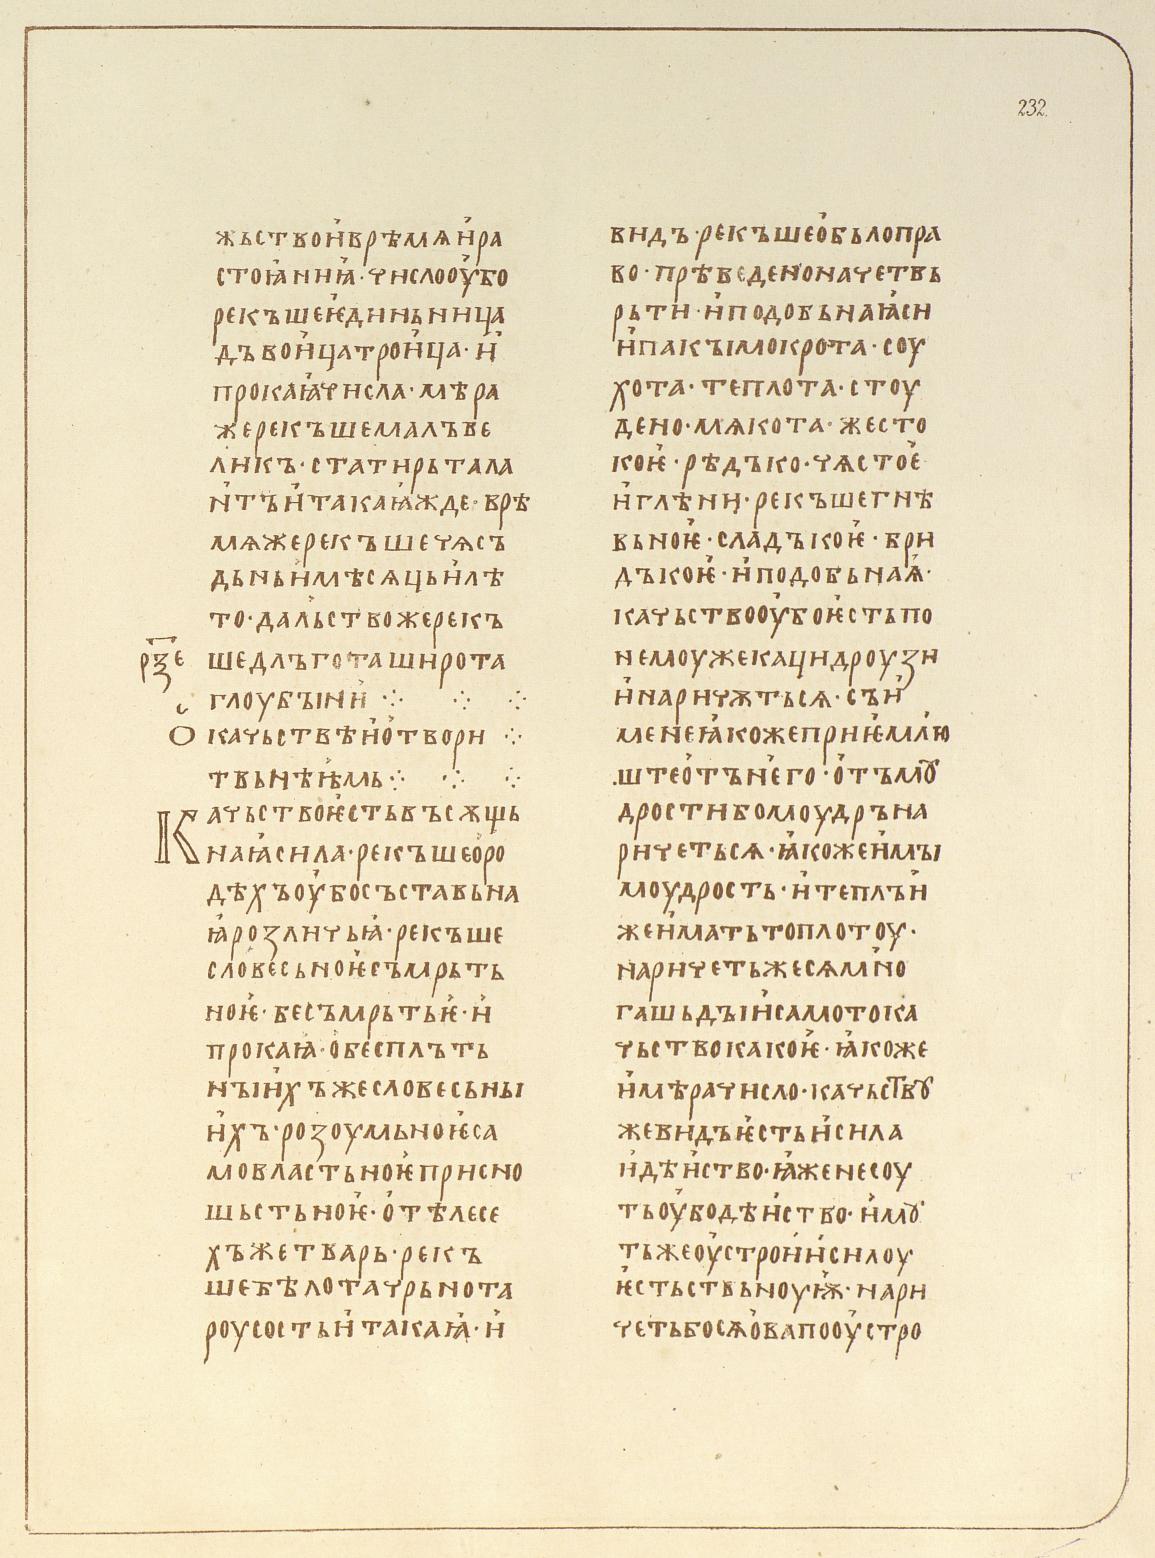 232.
жьствои҆врѣмѧи҆ра
стоꙗ҆ниꙗ҆·числооу҆бо
рекъшеѥ҆диньница
дъвои҆цатрои҆ца·и҆
прокаꙗ҆числа·мѣра
жерекъшемалъве
ликъ·статирьтала
и҆тъи҆такаꙗ҆жде·врѣ
мѧжерекъшечѧсъ
дьньи҆мѣсѧцьи҆лѣ
то·дальствожерекъ
рѯе
шедлъготаширота
глоубꙑни҆ ⁘ ⁘ ⁘
О҆качьствѣи҆о҆твори ⁘
твьнѣѥ҆мь ⁘ ⁘ ⁘
Качьствоѥ҆стьвъсѫщь
наꙗ҆сила·рекъшео҆ро
дѣхъоу҆босъставьна
ꙗ҆розличьꙗ҆·рекъше
словесьноѥ҆съмрьть
ноѥ҆·бесъмрьтьѥ҆·и҆
прокаꙗ҆·о҆бесплъть
нꙑи҆хъжесловесьнꙑ
и҆хъ·розоумьноѥ҆са
мовластьноѥ҆присно
шьстьноѥ҆·о҆тѣлесе
хъжетварь·рекъ
шебѣлотачрьнота
роусостьи҆такаꙗ҆·и҆
видъ·рекъшео҆бьлопра
во·прѣведеноначетвь
рьти·и҆подобьнаꙗ҆си
и҆пакꙑмокрота·соу
хота·теплота·стоу
дено·мѧкота·жесто
коѥ҆·рѣдъко·чѧстоѥ҆
и҆глѣни·рекъшегнѣ
вьноѥ҆·сладъкоѥ҆·бри
дъкоѥ҆·и҆подобьнаꙗ҆·
качьствооу҆боѥ҆стьпо
немоужекацидроуѕи
и҆наричѫтьсѧ·съи҆
менеꙗ҆кожеприѥ҆млю҆
штео҆тънего·о҆тъмꙋ
дростибомоудръна
ричетьсѧ·ꙗ҆кожеи҆мꙑ
моудрость·и҆теплъи҆
жеи҆матьтоплотоу·
наричетьжесѧмно
гашьдꙑи҆самотока
чьствокакоѥ҆·ꙗ҆коже
и҆мѣрачисло·качьствꙋ
жевидъѥ҆стьи҆сила
и҆дѣи҆ство·ꙗ҆женесоу
тьоу҆бодѣи҆ство·и҆мꙋ
тьжеоу҆строи҆и҆силоу
ѥ҆стьствьноуѭ҆·нари
четьбосѧо҆вапооу҆стро